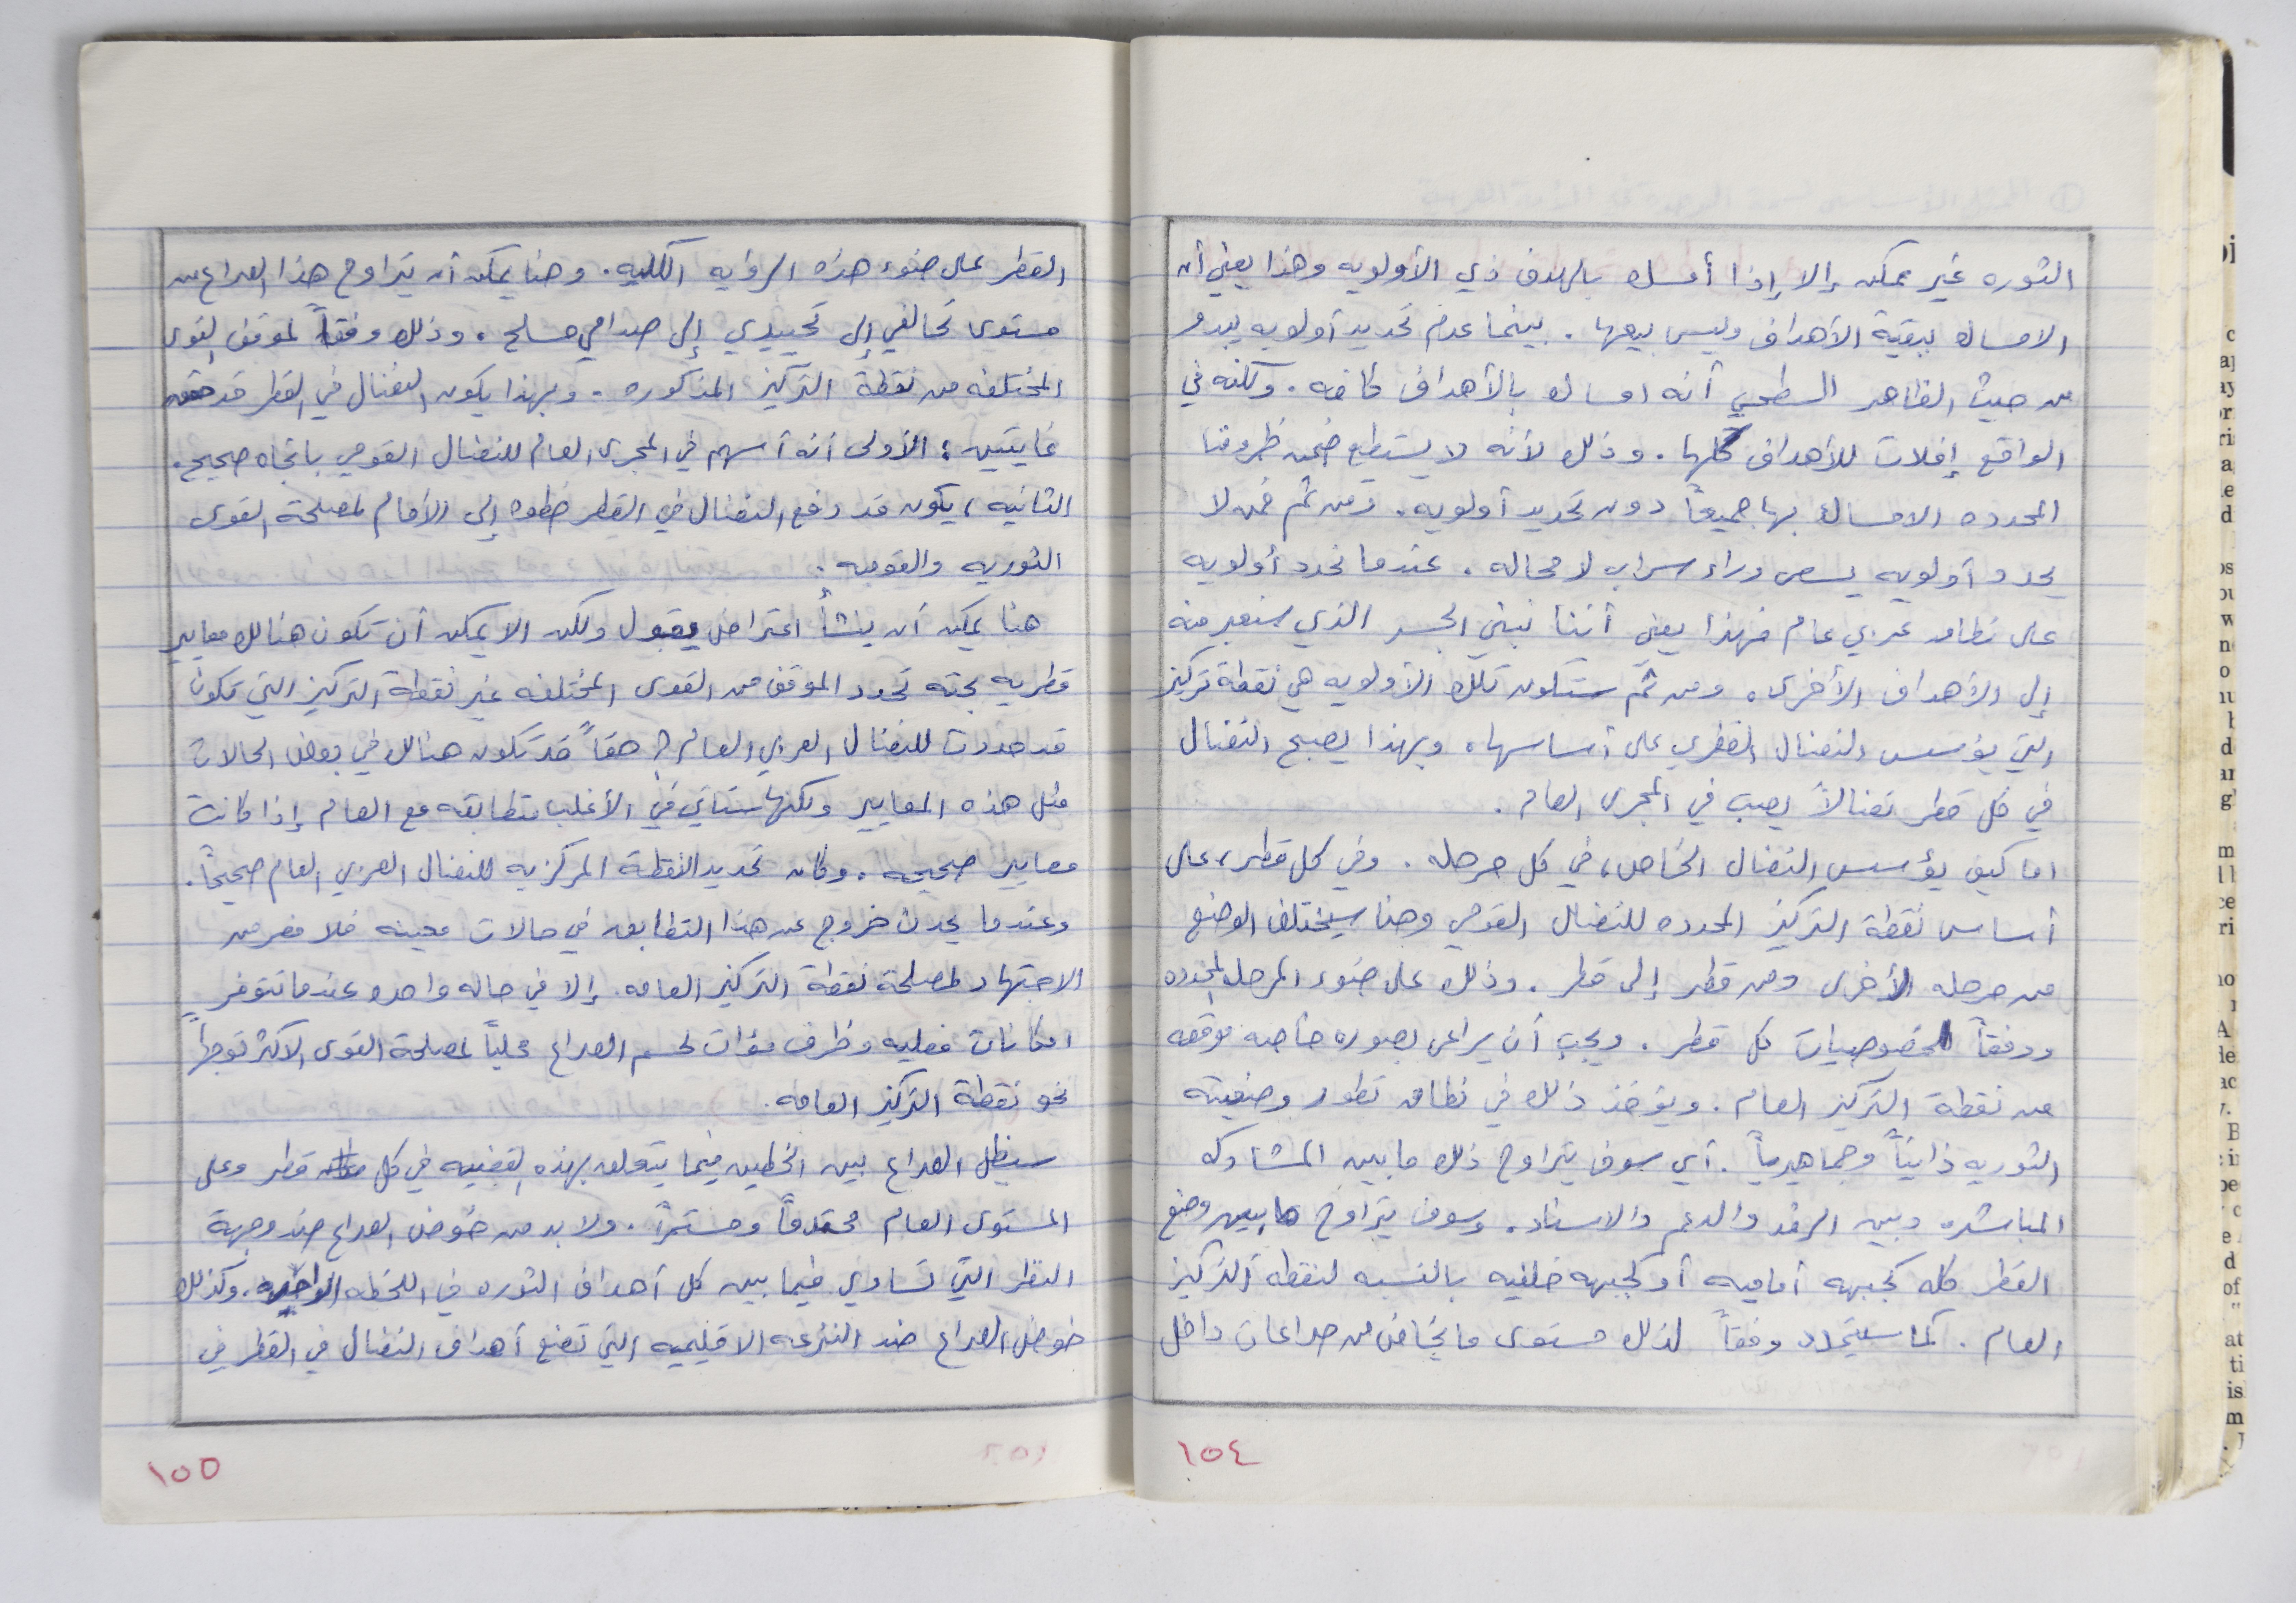 الثوره غير ممكن إلا إذا أمسك بالهدف ذي الأولويه وهذا يعني أن
الامساك ببقية الأهداف وليس بيعها . بينما عدم تحديد أولويه يبدو
من حيث الظاهر السطحي أنه امساك بالأهداف كافه . ولكنه في
الواقع إفلات للأهداف كلها . وذلك لأنه لا يستطيع ضمن ظروفنا
المحدده الامساك بها جميعاً دون تحديد أولويه . ومن ثم فمن لا
يحدد أولويه يسعى وراء سراب لا محاله . عندما نحدد أولويه
على نطاق عربي عام فهذا يعني أننا نبني الجسر الذي سنعبر منه
إلى الأهداف الأخرى . ومن ثم ستكون تلك الأولويه هي نقطة تركيز
التي يؤسس النضال القطري على أساسها . وبهذا يصبح النضال
في كل قطر نضالاً يصب في المجرى العام .
اما كيف يؤسس النضال الخاص ، في كل مرحله . وفي كل قطر ، على
أساس نقطة التركيز المحدده للنضال القومي وهنا سيختلف الوضع
من مرحله لأخرى ومن قطر إلى قطر . وذلك على ضوء المرحل المحدده
ووفقاً لخصوصيات كل قطر . ويجب أن يراعى بصوره خاصه موقعه
من نقطة التركيز العام . ويؤخذ ذلك في نطاق تطور وضعيته
الثوريه ذاتياً وجماهيرياً . أي سوف يتراوح ذلك ما بين المشاركه
المباشره وبين الرفد والدعم والاسناد . وسوف يتراوح ما بين وضع
القطر كله كجبهه أماميه أو كجبهه خلفيه بالنسبه لنقطة التركيز
العام . كما سيتحدد وفقاً لذلك مستوى ما يخاض من صراعات داخل
١٥٤
القطر على ضوء هذه الرؤيه الكليه . وهنا يمكن أن يتراوح هذا الصراع من
مستوى تحالفي إلى تحييدي إلى صدامي مسلح . وذلك وفقاً لموقف القوى
المختلفه من نقطة التركيز المذكوره . وبهذا يكون النضال في القطر قد حقق
غايتين : الأولى أنه أسهم في المجرى العام للنضال القومي باتجاه صحيح .
الثانيه ، يكون قد دفع النضال في القطر خطوه إلى الأمام لمصلحة القوى
الثوريه والقوميه .
هنا يمكن أن ينشأ اعتراض يقول ولكن الا يمكن أن تكون هنالك معايير
قطريه بحته تحدد الموقف من القوى المختلفه غير نقطة التركيز التي تكون
قد حددت للنضال العربي العام ؟ حقاً قد تكون هنالك في بعض الحالات
مثل هذه المعايير ولكنها ستأتي في الأغلب متطابقه مع العام إذا كانت
معايير صحيحه . وكان تحديد النقطة المركزيه للنضال العربي العام صحيحاً .
وعندما يحدث خروج عن هذا التطابق في حالات معينه فلا مفر من
الاجتهاد لمصلحة نقطة التركيز العامه . إلا في حاله واحده عندما تتوفر
امكانات فعليه وظرف مؤات لحسم الصراع محلياً لمصلحة القوى الاكثر توجهاً
نحو نقطة التركيز العامه .
سيظل الصراع بين الخطين فيما يتعلق بهذه القضيه في كل قطر وعلى
المستوى العام محتدماً ومستمراً . ولا بد من خوض الصراع ضد وجهة
النظر التي تساوي فيما بين كل أهداف الثوره في اللحظه الواحده . وكذلك
خوض الصراع ضد النزعه الاقليميه التي تضع أهداف النضال في القطر في
١٥٥